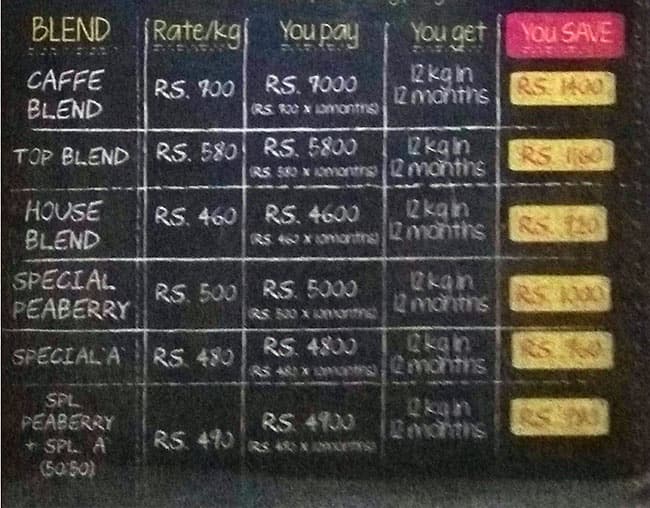 BLEND Rate/kg You pay You get You SAVE
CAFFE BLEND RS. 700 RS. 7000 (RS. 700 x 10months) 12 kg in 12 months RS. 1400
TOP BLEND RS. 580 RS. 5800 (RS. 580 x 10months) 12 kg in 12 months RS. 1160
HOUSE BLEND RS. 460 RS. 4600 (RS. 460 x 10months) 12 kg in 12 months RS. 920
SPECIAL PEABERRY RS. 500 RS. 5000 (RS. 500 x 10months) 12 kg in 12 months RS. 1000
SPECIAL 'A' RS. 480 RS. 4800 (RS. 480 x 10months) 12 kg in 12 months RS. 960
SPL PEABERRY + SPL 'A' (50:50) RS. 490 RS. 4900 (RS. 490 x 10months) 12 kg in 12 months RS. 980